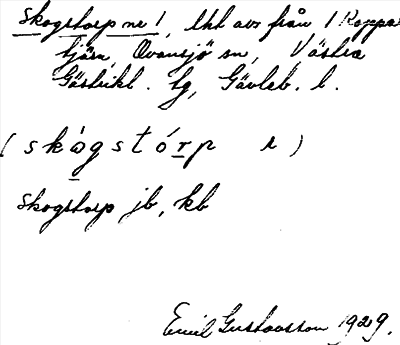 Skogstorp nr 1, lht avs från 1 Koppar
tjärn, Ovansjö sn, Västra
Gästrikl. tg, Gävleb. l.
(skógstórp r)
Skogstorp jb, kb
Emil Gustavsson 1929.